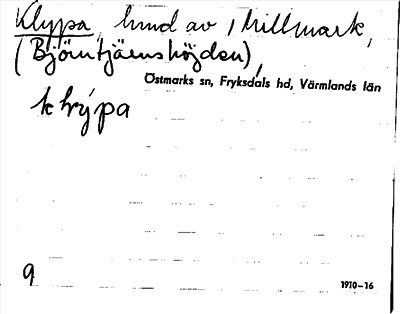 Klyppa, hund av
(Björntjärnshöjden),
Östmarks sn, Fryksdals hd, Värmlands län
9
1910-16